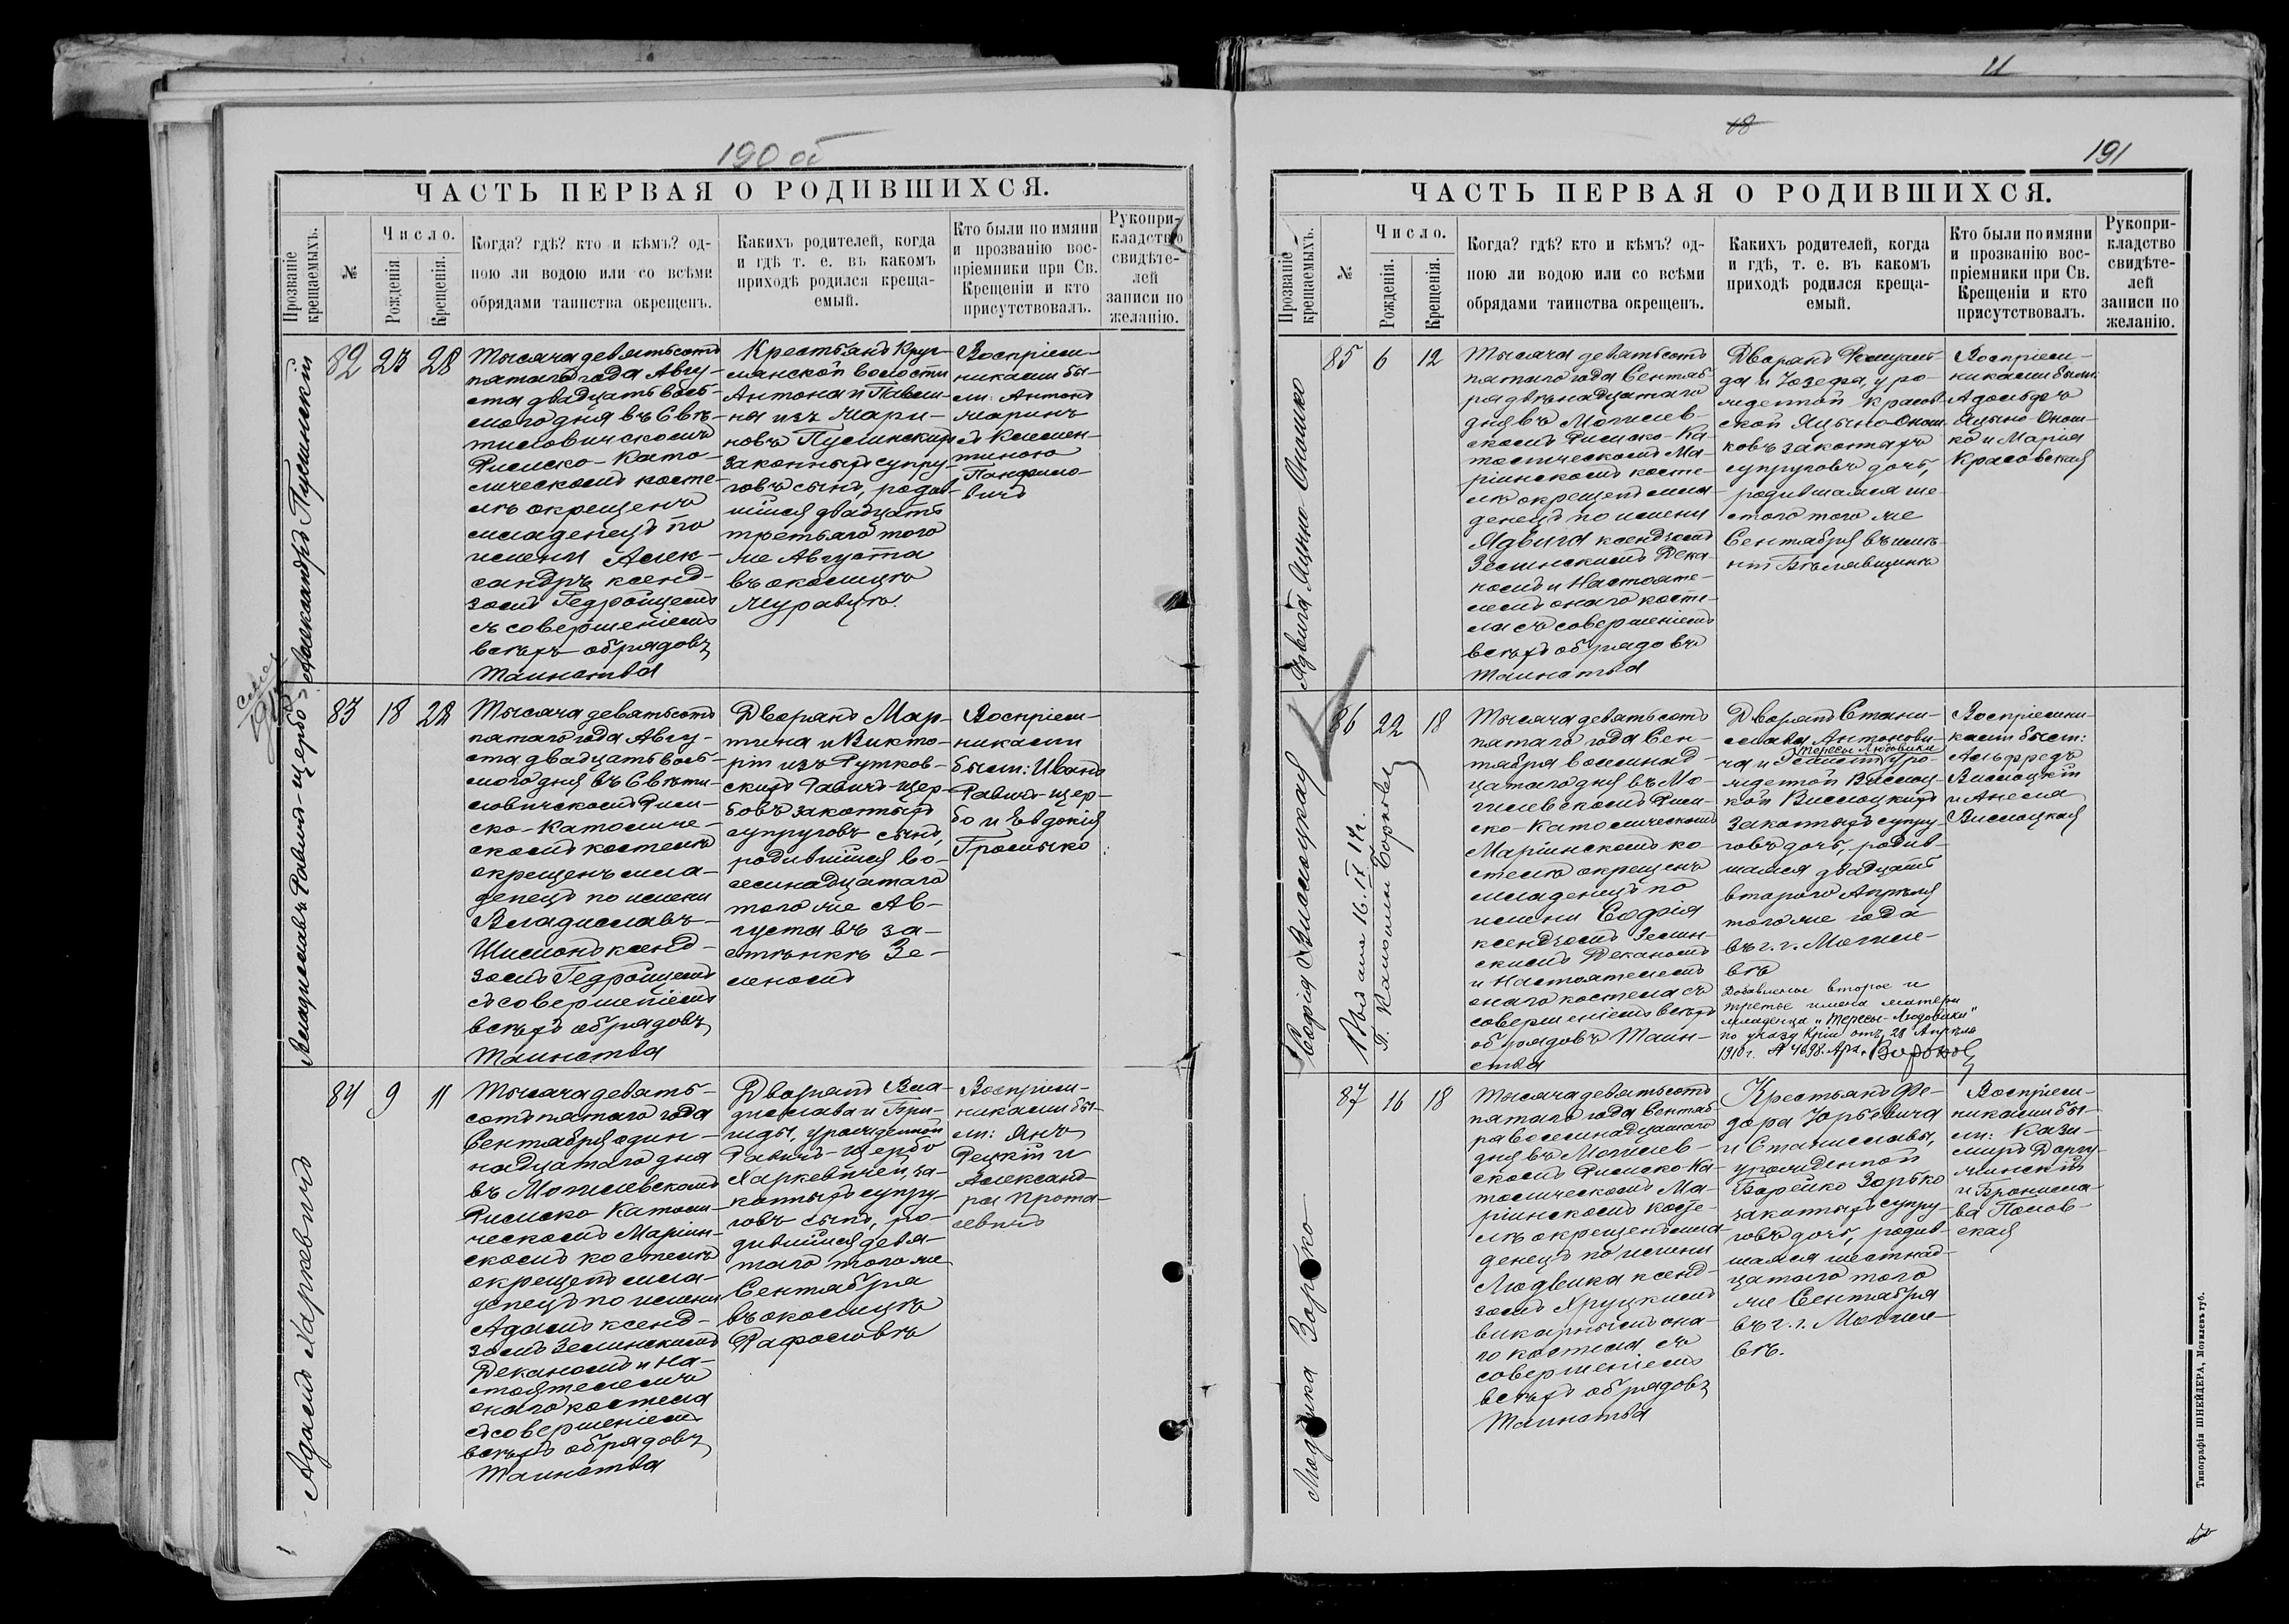 190 об
ЧАСТЬ ПЕРВАЯ О РОДИВШИХСЯ.
Прозваніе крещаемыхъ.
№
Число.
Рожденія.
Крещенія.
Когда? гдѣ? кто и кѣмъ? од-
ною ли водою или со всѣми
обрядами таинства окрещенъ.
Какихъ родителей, когда
и гдѣ т. е. въ какомъ
приходѣ родился креща-
емый.
Кто были по имяни
и прозванію вос-
пріемники при Св.
Крещеніи и кто
присутствовалъ.
Рукопри-
кладство
свидѣте-
лей
записи по
желанію.
Александръ Пусинскій
82
23
28
Тысяча девятьсотъ
пятаго года Авгу-
ста двадцать вось-
мого дня въ Свѣ-
тиловичскомъ
Римско-Като-
лическомъ косте-
лѣ окрещенъ
младенецъ по
имени Алек-
сандръ ксенд-
зомъ Гедройцемъ
съ совершеніемъ
всѣхъ обрядовъ
Таинства
Крестьянъ Круг-
лянской волости
Антона и Павли-
ны изъ Мари-
новъ Пусинскихъ
законныхъ супру-
говъ сынъ, родив-
шійся двадцать
третьяго того
же Августа
въ околицѣ
Муравцѣ.
Воспріем-
никами бы-
ли: Антонъ
Маринъ
съ Клемен-
тиною
Панфило-
вичъ
Владиславъ Равичъ-Щербо
83
18
28
Тысяча девятьсотъ
пятаго года Авгу-
ста двадцать вось-
мого дня въ Свѣти-
ловичскомъ Рим-
ско-Католиче-
скомъ костелѣ
окрещенъ мла-
денецъ по имени
Владиславъ-
Шимонъ ксенд-
зомъ Гедройцемъ
съ совершеніемъ
всѣхъ обрядовъ
Таинства
Дворянъ Мар-
тина и Викто-
рiи изъ Рутков-
скихъ Равичъ-Щер-
бовъ законныхъ
супруговъ сынъ,
родившійся во-
семнадцатаго
того же Ав-
густа въ за-
стѣнкѣ Зе-
леномъ
Воспріем-
никами
были: Иванъ
Равичъ-Щер-
бо и Евдокія
Громыко
Адамъ Харкевичъ
84
9
11
Тысяча девять-
сотъ пятаго года
Сентября один-
надцатаго дня
въ Могилевскомъ
Римско-Католи-
ческомъ Маріин-
скомъ костелѣ
окрещенъ мла-
денецъ по имени
Адамъ ксенд-
зомъ Зелинскимъ
Деканомъ и На-
стоятелемъ
онаго костела
съ совершеніемъ
всѣхъ обрядовъ
Таинства
Дворянъ Вла-
дислава и Бри-
гиды, урожденной
Равичъ-Щербо
Харкевичей, за-
конныхъ супру-
говъ сынъ, ро-
дившійся девя-
таго того же
Сентября
въ околицѣ
Рафоловѣ
Воспріем-
никами бы-
ли: Янъ
Рецкій и
Александ-
ра Прота-
севичъ
11
18
191
ЧАСТЬ ПЕРВАЯ О РОДИВШИХСЯ.
Прозваніе крещаемыхъ.
№
Число.
Рожденія.
Крещенія.
Когда? гдѣ? кто и кѣмъ? од-
ною ли водою или со всѣми
обрядами таинства окрещенъ.
Какихъ родителей, когда
и гдѣ, т. е. въ какомъ
приходѣ родился креща-
емый.
Кто были по имяни
и прозванію вос-
пріемники при Св.
Крещеніи и кто
присутствовалъ.
Рукопри-
кладство
свидѣте-
лей
записи по
желанію.
Ядвига Яцыно-Ономко
85
6
12
Тысяча девятьсотъ
пятаго года Сентяб-
ря двѣнадцатаго
дня въ Могилев-
скомъ Римско-Ка-
толическомъ Ма-
ріинскомъ косте-
лѣ окрещенъ мла-
денецъ по имени
Ядвига ксендзомъ
Зелинскимъ Дека-
номъ и Настояте-
лемъ онаго косте-
ла съ совершеніемъ
всѣхъ обрядовъ
Таинства
да и Юзефа, уро-
жденной Красов-
ской Яцыно-Оном-
ковъ законныхъ
супруговъ дочь,
родившаяся ше-
стого того же
Сентября въ имѣ-
ніи
Воспріем-
никами были:
Адольфъ
Яцыно-Оном-
ко и Марія
Красовская
Софія Висмоцкая
86
22
18
Выдана 16. IV 14 г.
П. Капоник Борковъ
Тысяча девятьсотъ
пятаго года Сен-
тября восемнад-
цатаго дня въ Мо-
гилевскомъ Рим-
ско-Католическомъ
Маріинскомъ ко-
стелѣ окрещенъ
младенецъ по
имени Софія
ксендзомъ Зелин-
скимъ Деканомъ
и Настоятелемъ
онаго костела съ
совершеніемъ всѣхъ
обрядовъ Таин-
ства
Дворянъ Стани-
слава Антонови-
Тересы Людовики
ча и уро-
жденной Висмоц-
кой Висмоцкихъ
законныхъ супру-
говъ дочь, родив-
шаяся двадцать
второго Апрѣля
того же года
въ г. г. Могиле-
вѣ
Добавленіе второе и
третье имена матери
младенца „Тересы-Людовики“
по указу Кріи отъ 28 Апрѣля
1910 г. № 4698.
Воспріемни-
ками были:
Альфредъ
Висмоцкій
и Анеля
Висмоцкая
Людвика Зорько
87
16
18
Тысяча девятьсотъ
пятаго года Сентяб-
ря восемнадцатаго
дня въ Могилев-
скомъ Римско-Ка-
толическомъ Ма-
ріинскомъ косте-
лѣ окрещенъ мла-
денецъ по имени
Людвика ксенд-
зомъ Хруцкимъ
викарнымъ она-
го костела съ
совершеніемъ
всѣхъ обрядовъ
Таинства
Крестьянъ Фе-
дора Юрьевича
и Станиславы,
урожденной
Борейко Зорько
законныхъ супру-
говъ дочь, родив-
шаяся шестнад-
цатаго того
же Сентября
въ г. г. Могиле-
вѣ.
Воспріем-
никами бы-
ли: Кази-
миръ Доргу-
жинскій
и Бронисла-
ва Попов-
ская
Типографія ШНЕЙДЕРА, Могилевъ губ.